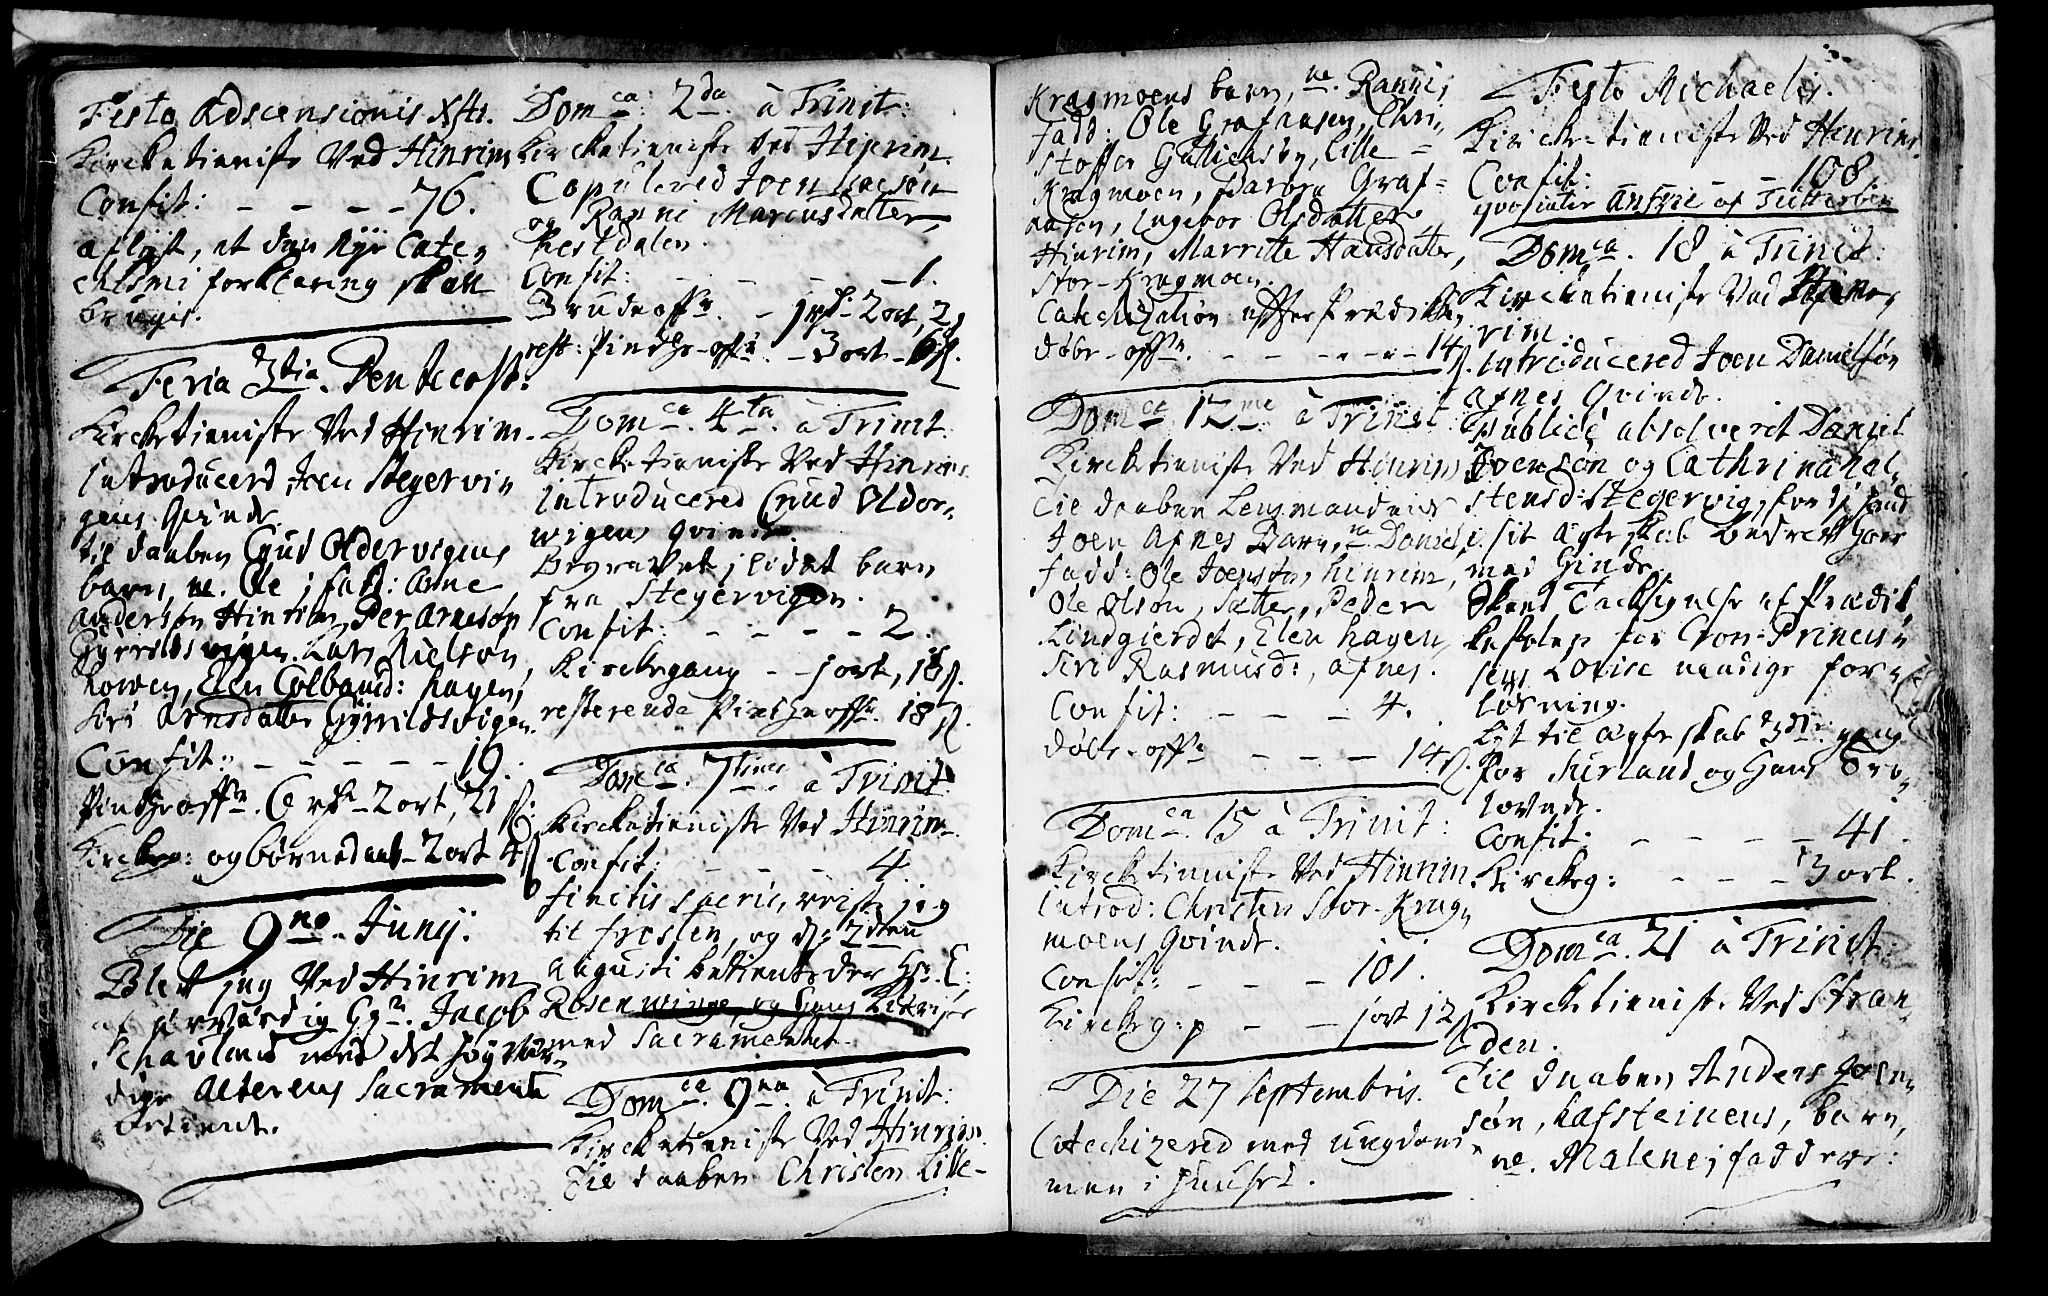 Festo Adscensionis Xsti.
Kircketieniste Ved Hinrim
Confit: - - - - 76.
aflyst, at den nye Cate-
chismi forklaring skall
brugis.
Feria 3tia. Pentecost:
Kircketieniste Ved Hinrim.
introducerd Joen Stegervi-
gens Qvinde
til daaben Cnud Oldervigens
barn, ne. Ole; fadd: Arne
anderssøn Hinrim, Per Arnesøn
Gyrrildsvigen, Lars Nielsøn
Elen Colbaind: hagen,
Siri Arnsdatter Gyrrildsvigen.
Confit: - - - - - 19.
Pintzoffr. 6 rdl. 2 ort, 21 s:
Kirckeg: og børnedaab - 2 ort 4 s.
Die 9no. Junij.
Blef jeg Ved Hinrim
af ærværdig Hr. Jacob
Schavland med det høyvær-
dige Alterens Sacramente
betient.
Domca: 2da. à Trinit:
Kircketieniste Ved Hinrim.
Copulered Joen Isacsøn
og Ranni Marcusdatter,
Restdalen.
Confit: - - - - - 1.
Brudeoffr. - 1 rdl. 2 ort, 2 s
rest: Pindtz-offr. - 3 ort - 6 s.
Domca. 4ta. à Trinit.
Kircketieniste Ved Hinrim.
introducered Cnud Oldor-
wigens qvinde.
Begravet j lidet barn
fra Stegervigen.
Confit: - - - - 2.
Kirckegang - - 1 ort, 18 s.
resterende Pintzeoffr. 18 s.
Domca. 7tima. à Trinit.
Kircketieniste Ved Hinrim.
Confit: - - - 4
finitis sacris, reiste jeg
til frosten, og d. 2den
Augusti betiente der Hr. E:
Rosenwinge, og Hans Kieriste
med Sacramentet.
Domca. 9na. à Trinit:
Kircketieniste Ved Hinrim.
Til daaben Christen Lille-
Kragmoens barn, ne. Ranni;
fadd: Ole Grafaasen, Chri-
stoffer Gulliensby, Lille-
Kragmoen, Barbra Graf-
aasen, Ingebor Olsdatter
Hinrim, Marritte Hansdatter,
Stor-Kragmoen.
Catechization efter Prædiken
Døbe-offr. - - - - - - 14 s.
Domca 12ma. à Trinit.
Kircketieniste Ved Hinrim
Til daaben Lensmandens
Joen Afnes Barn, ne. Daniel;
fadd: Ole Joensøn, hinrim,
Ole Olsøn, Sætter, Peder
Lindgierdet, Elen hagen,
Siri Rasmusd:, afnes.
Confit: - - - 4.
Døbe-offr - - - - 14 s.
Domca. 15 à Trinit:
Kircketieniste Ved Hinrim.
introd: Christen Stor-Krag-
moens Qvinde.
Confit: - - - 101.
Kirckeg: - - - 1 ort 12 s.
Die 27 Septembris.
Catechizered med ungdom-
men i Huuset.
Festo Michaelis.
Kircketieniste Ved Hinrim.
Confit: - - - 108.
qvos inter Anfrie af Tutterøen
Domca. 18 à Trinit:
Kircketieniste Ved Hin-
rim.
introducered Joen Danielsøn
afnes Qvinde.
publicè absolveret Daniel
Evensøn og Cathrina Hal-
stensd: Stegervig, for
sit ægteskab bedrevet Hoer
med hinde.
Skeed Tacksigelse af Prædik
kestolen for Cron-Princes-
sens Lovise naadige for-
løsning.
Lyst til ægteskab 3die gang
for Surland og Hans tro-
lovede.
Confit: - - - - - 41.
Kirckeg: - - - - 3 ort.
Domca. 21 à Trinit:
Kircketieniste Ved Stran-
den.
Til daaben Anders Joen-
søn, Hafsteinens, barn,
ne. Malene; faddere: